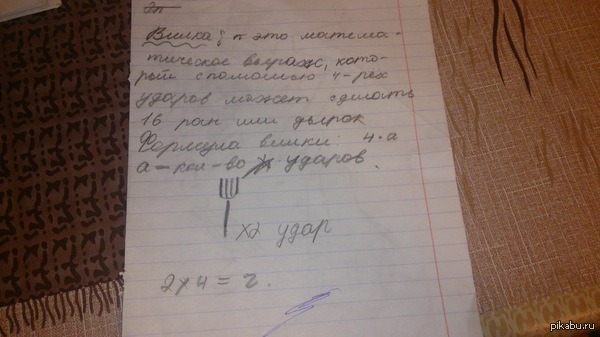 Вилка; п это матема-
тическое выраж, кото-
рый с помошью 4-рех
ударов может сделать
16 ран или дырок
Формула вилки: 4·а
а – кол-во ударов.
х2 удар
2х4 = 2.
pikabu.ru